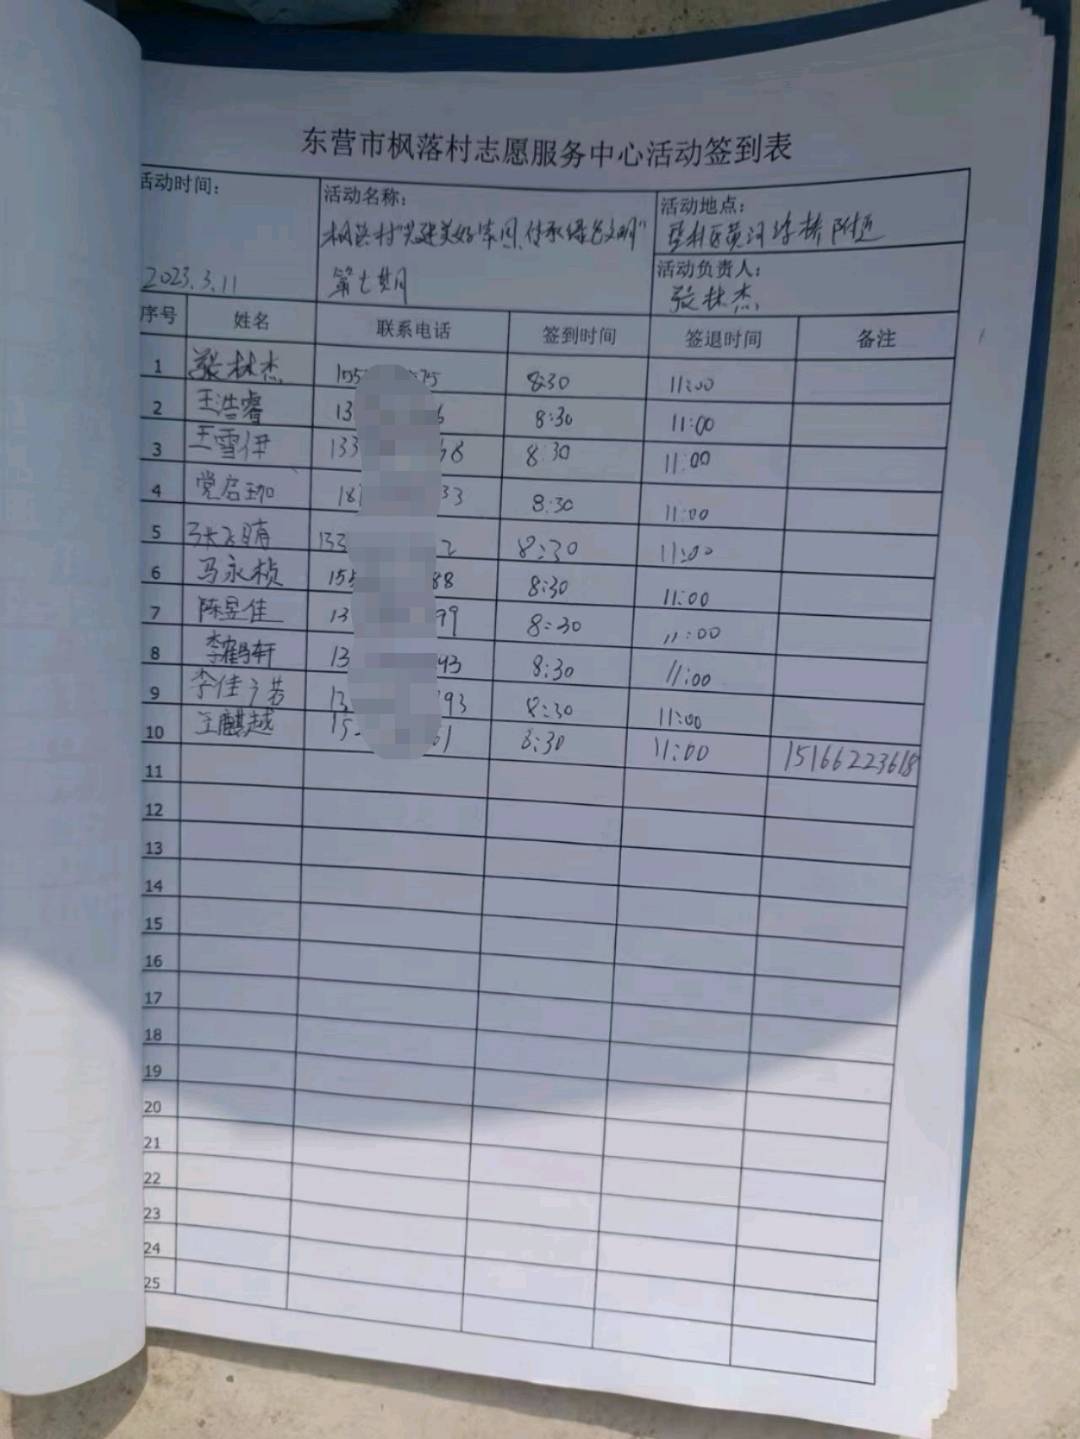 东营市枫落村志愿服务中心活动签到表
活动时间：
2023.3.11
活动名称：
枫落村"共建美好家园,传承绿色文明"
第七期
活动地点：
垦利区黄河浮桥附近
活动负责人：
张林杰
序号 姓名 联系电话 签到时间 签退时间 备注
1 张林杰 155 75 8:30 11:00
2 王浩睿 13 6 8:30 11:00
3 王雪伊 133 68 8:30 11:00
4 党启珈 18 33 8:30 11:00
5 133 2 8:30 11:00
6 马永桢 155 88 8:30 11:00
7 陈昱佳 13 99 8:30 11:00
8 李鹤轩 13 93 8:30 11:00
9 李佳 13 93 8:30 11:00
10 王麒越 15 61 8:30 11:00 15166223618
11
12
13
14
15
16
17
18
19
20
21
22
23
24
25